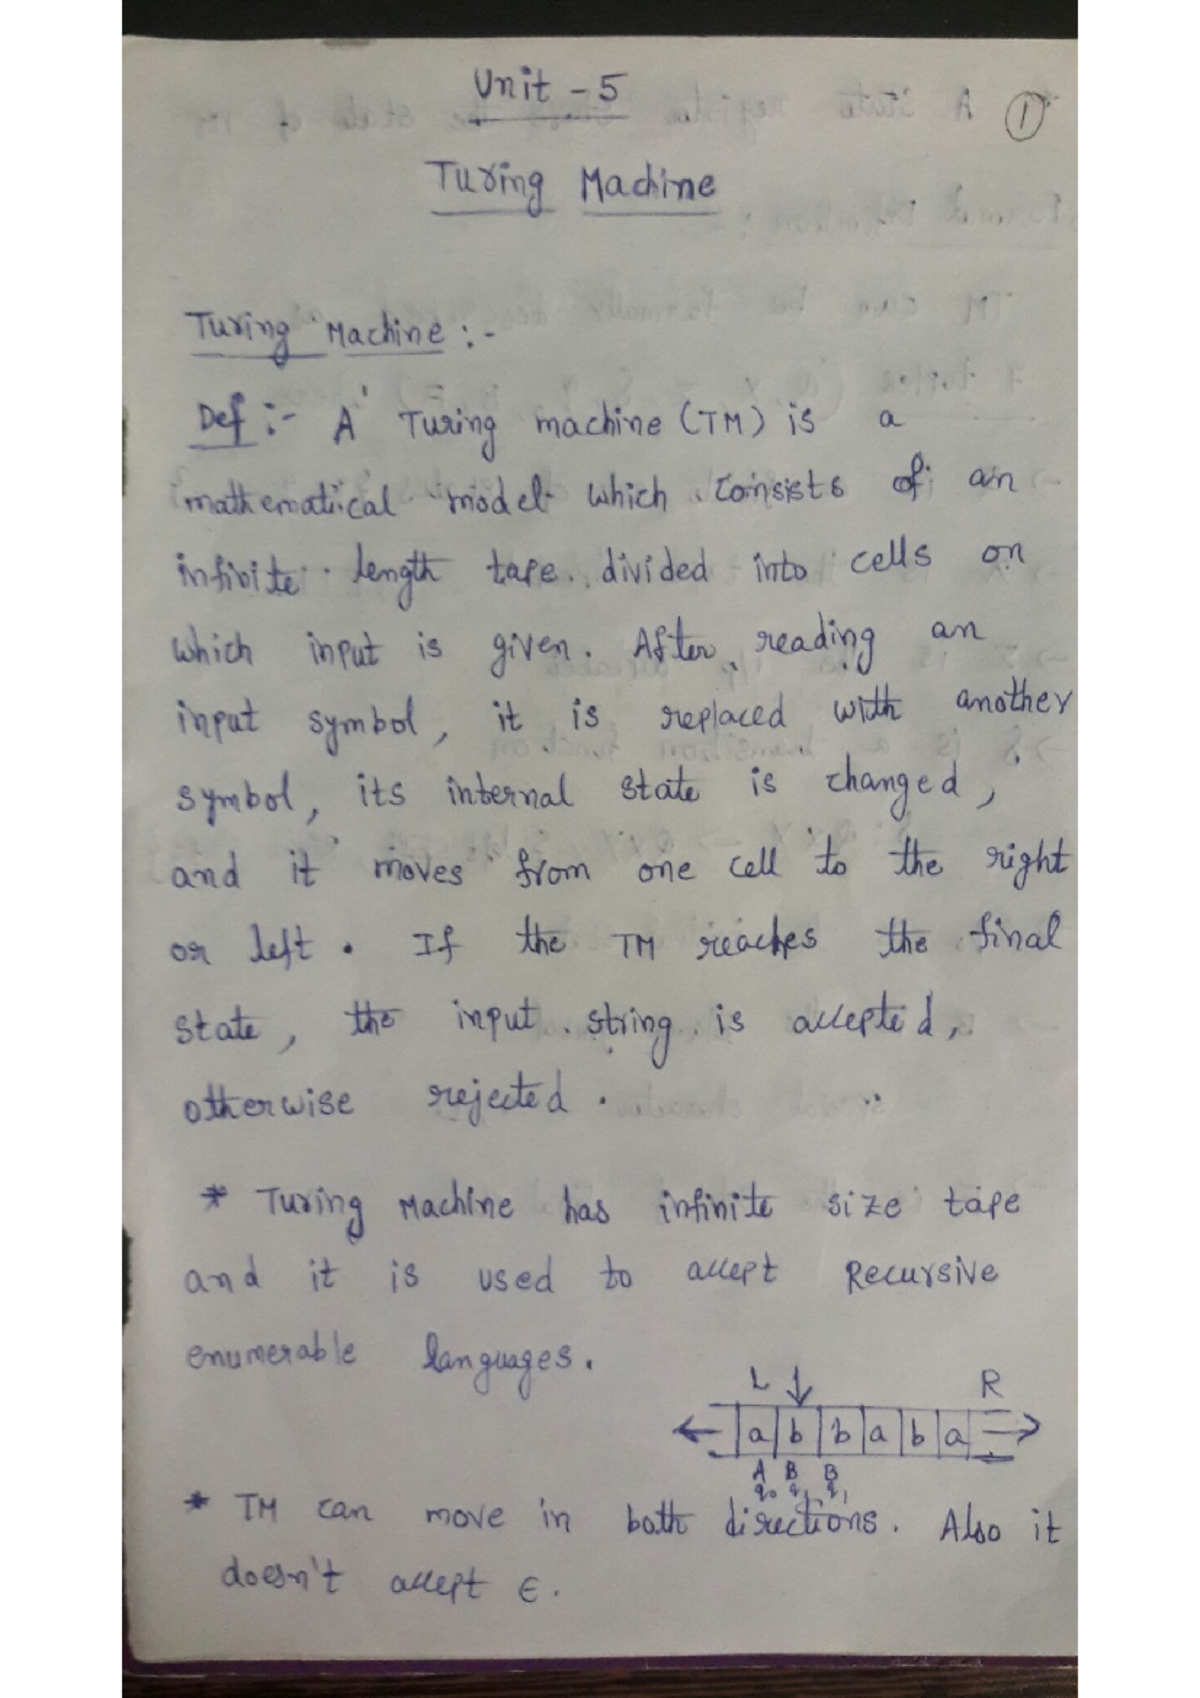 Unit - 5
1
Turing Machine
Turing Machine :-
Def :- A Turing machine (TM) is a
mathematical model which consists of an
infinite length tape divided into cells on
which input is given. After reading an
input symbol, it is replaced with another
symbol, its internal state is changed,
and it moves from one cell to the right
or left. If the TM reaches the final
state, the input string is accepted,
otherwise rejected.
* Turing Machine has infinite size tape
and it is used to accept Recursive
enumerable languages.
L ↓ R
← a b b a b a →
A B B
q₀ q₁ q₁
* TM can move in both directions. Also it
doesn't accept ε.